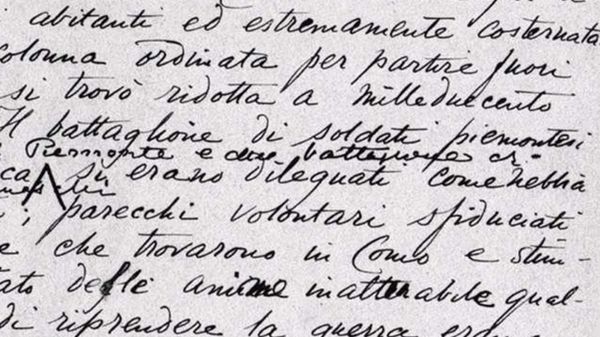 i abitanti ed estremamente costernata
colonna ordinata per partire fuori
si trovò ridotta a Milleduecento
Il battaglione di soldati piemontesi
Piemonte e due
ca si erano dileguati come nebbia
i, parecchi volontari sfiduciati
e che trovarono in Como e stim-
tato delle anime inalterabile qual-
di riprendere la guerra